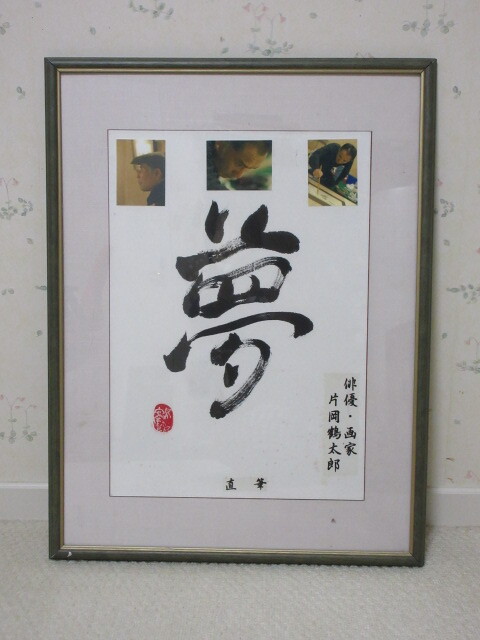 夢
俳優・画家
片岡鶴太郎
直筆